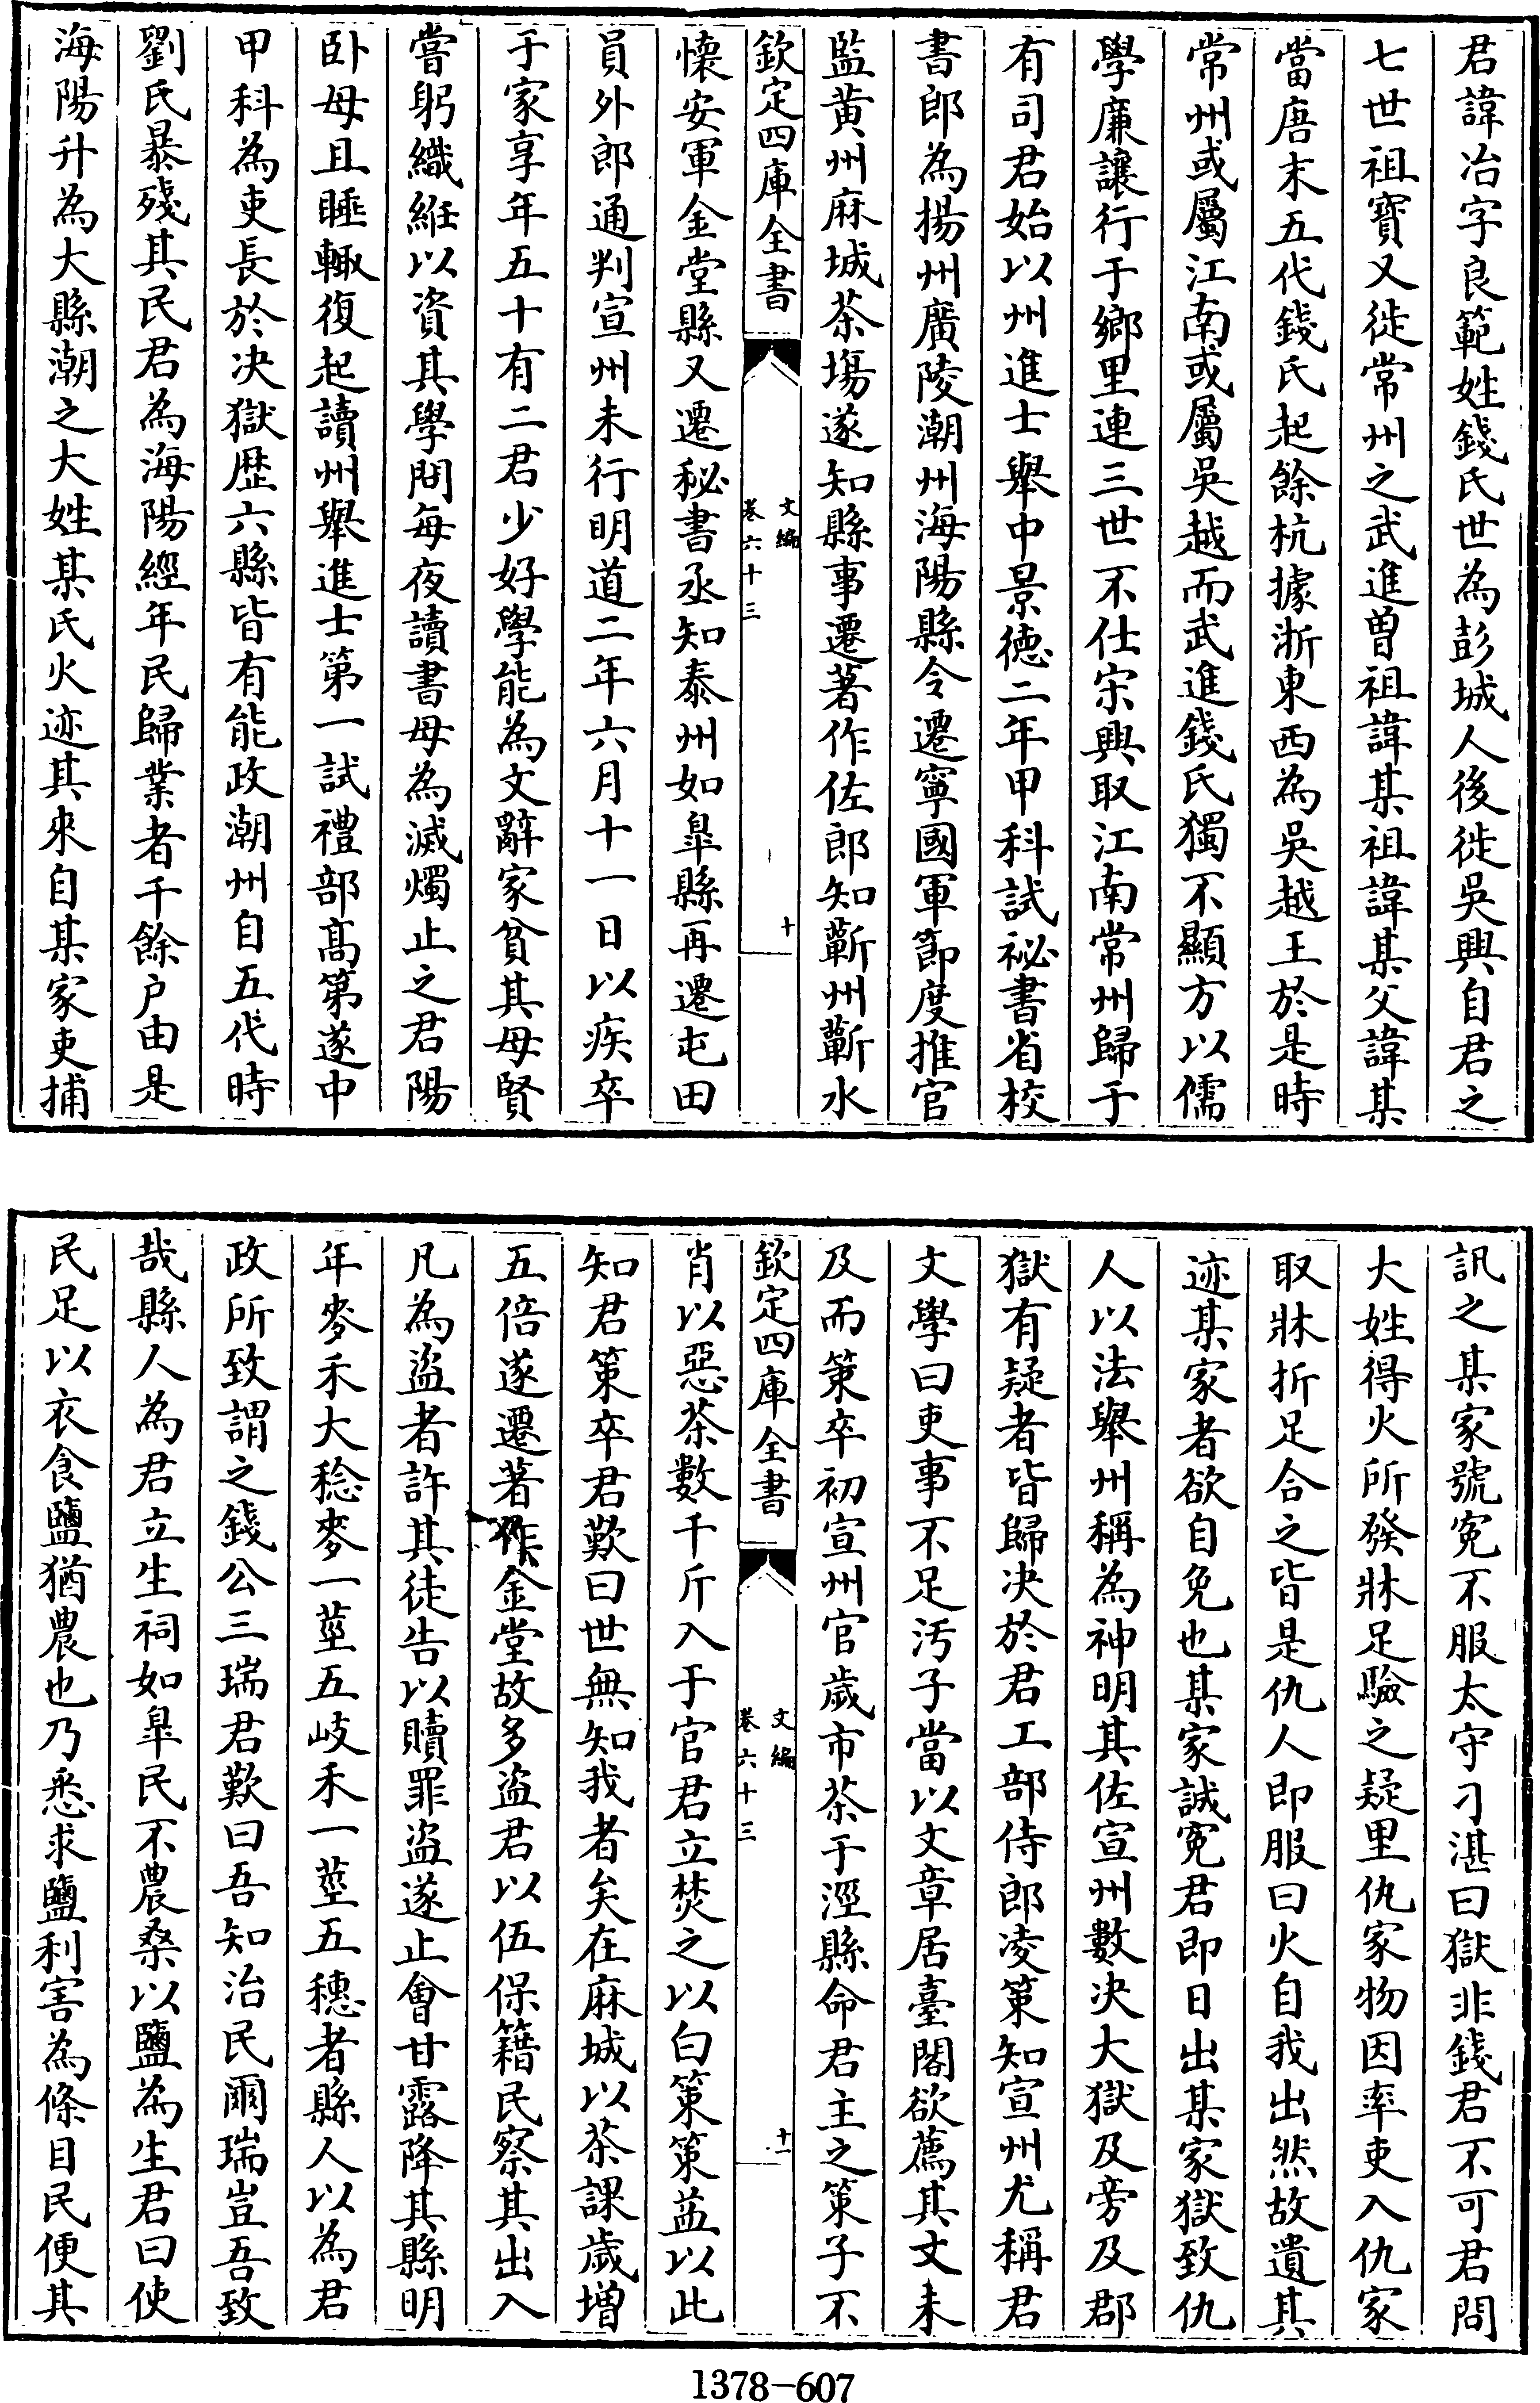 君諱冶字良範姓錢氏世為彭城人後徙吳興自君之
七世祖寶又徙常州之武進曽祖諱某祖諱某父諱某
當唐末五代錢氏起餘杭據浙東西為吳越王於是時
常州或屬江南或屬吳越而武進錢氏獨不顯方以儒
學廉讓行于鄉里連三世不仕宋興取江南常州歸于
有司君始以州進士舉中景德二年甲科試祕書省校
書郎為揚州廣陵潮州海陽縣令遷寧國軍節度推官
監黄州麻城茶塲遂知縣事遷著作佐郎知蘄州蘄水
欽定四庫全書
文編
卷六十三
十
懐安軍金堂縣又遷秘書丞知泰州如臯縣再遷屯田
員外郎通判宣州未行明道二年六月十一日以疾卒
于家享年五十有二君少好學能為文辭家貧其母賢
嘗躬織絍以資其學問每夜讀書母為滅燭止之君陽
卧母且睡輙復起讀州舉進士第一試禮部髙第遂中
甲科為吏長於决獄歴六縣皆有能政潮州自五代時
劉氏暴殘其民君為海陽經年民歸業者千餘户由是
海陽升為大縣潮之大姓某氏火迹其來自某家吏捕
訊之某家號寃不服太守刁湛曰獄非錢君不可君問
大姓得火所發牀足驗之疑里仇家物因率吏入仇家
取牀折足合之皆是仇人即服曰火自我出然故遺其
迹某家者欲自免也某家誠寃君即日出某家獄致仇
人以法舉州稱為神明其佐宣州數决大獄及旁及郡
獄有疑者皆歸决於君工部侍郎凌策知宣州尤稱君
文學曰吏事不足汚子當以文章居臺閣欲薦其文未
及而策卒初宣州官歲市茶于涇縣命君主之策子不
欽定四庫全書
文編
卷六十三
十一
肖以惡茶數千斤入于官君立焚之以白策策益以此
知君策卒君歎曰世無知我者矣在麻城以茶課歲増
五倍遂遷著作金堂故多盗君以伍保籍民察其出入
凡為盗者許其徒告以贖罪盗遂止㑹甘露降其縣明
年麥禾大稔麥一莖五岐禾一莖五穗者縣人以為君
政所致謂之錢公三瑞君歎曰吾知治民爾瑞豈吾致
哉縣人為君立生祠如臯民不農桑以鹽為生君曰使
民足以衣食鹽猶農也乃悉求鹽利害為條目民便其
1378-607